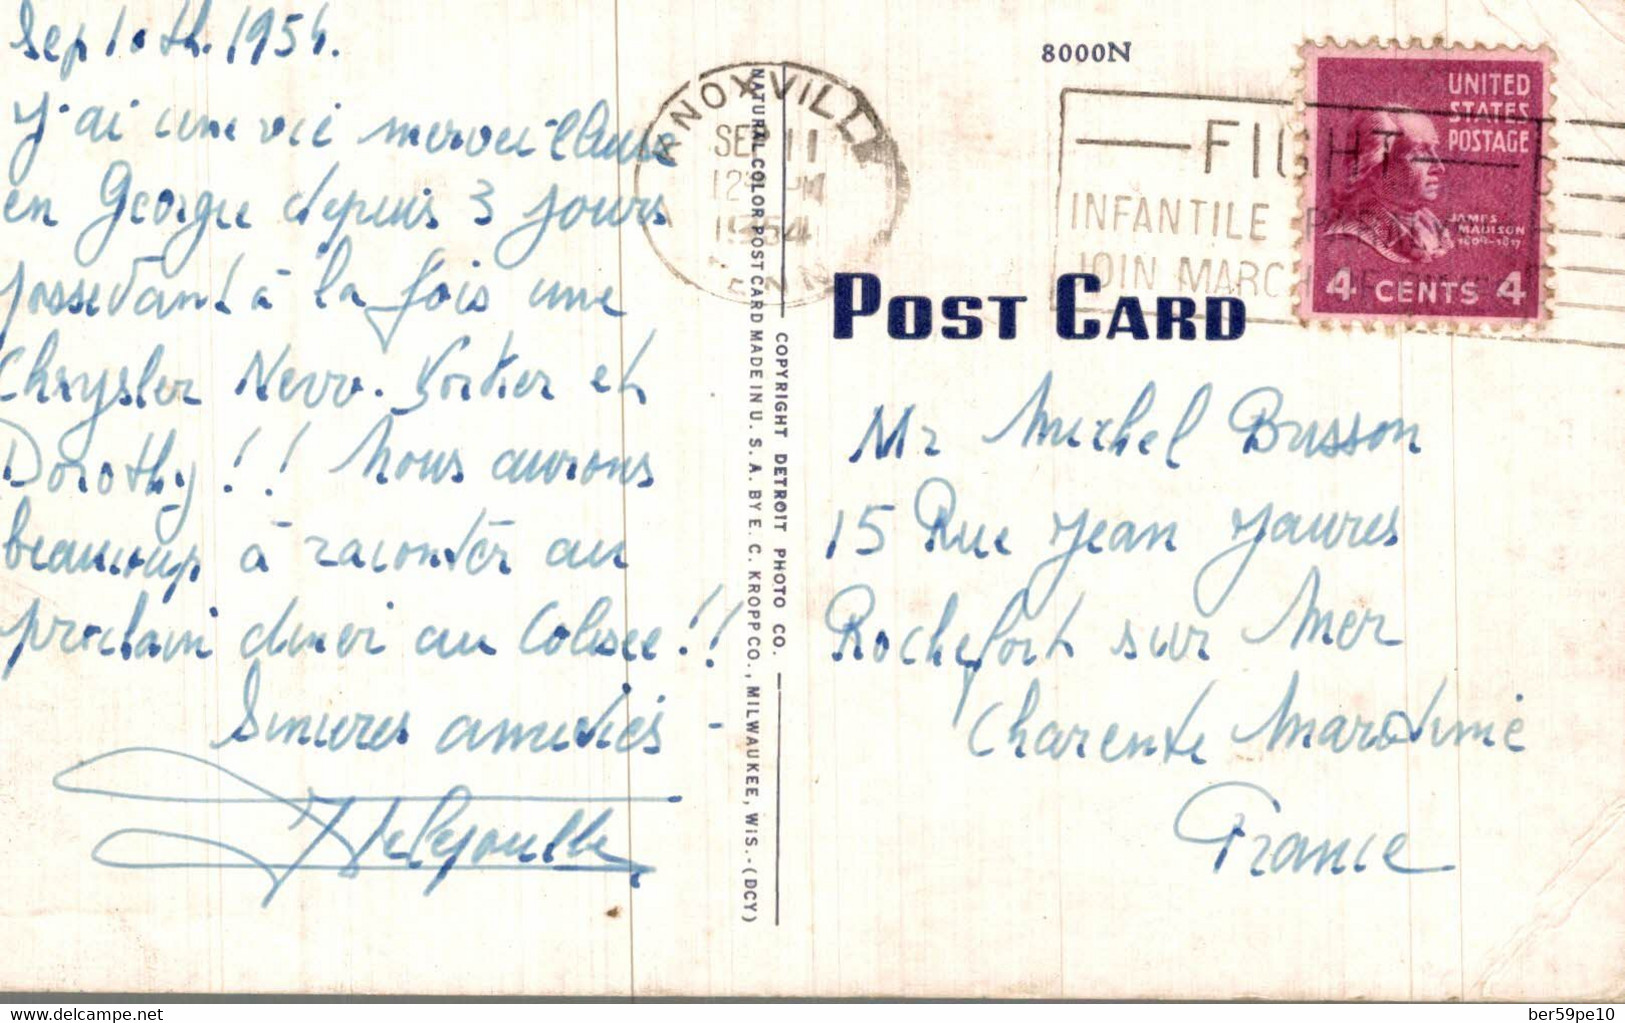 Sep 10th. 1954.
J'ai une vie merveilleuse
en Georgie depuis 3 jours
possedant à la fois une
Chrysler New et
Dorothy !! Nous aurons
beaucoup à raconter au
prochain diner au Colisee !!
Sinceres amitiés -
NATURAL COLOR POST CARD MADE IN U. S. A. BY E. C. KROPP CO., MILWAUKEE, WIS.-(DCY)
COPYRIGHT DETROIT PHOTO CO.
KNOXVILLE
SEP 11
12 PM
1954
TENN
8000N
FIGHT
INFANTILE
JOIN MARCH
UNITED
STATES
POSTAGE
JAMES
MADISON
1809-1817
4 CENTS 4
POST CARD
Mr Michel Busson
15 Rue Jean Jaures
Rochefort sur Mer
Charente Maritime
France
delcampe.net
ber59pe10